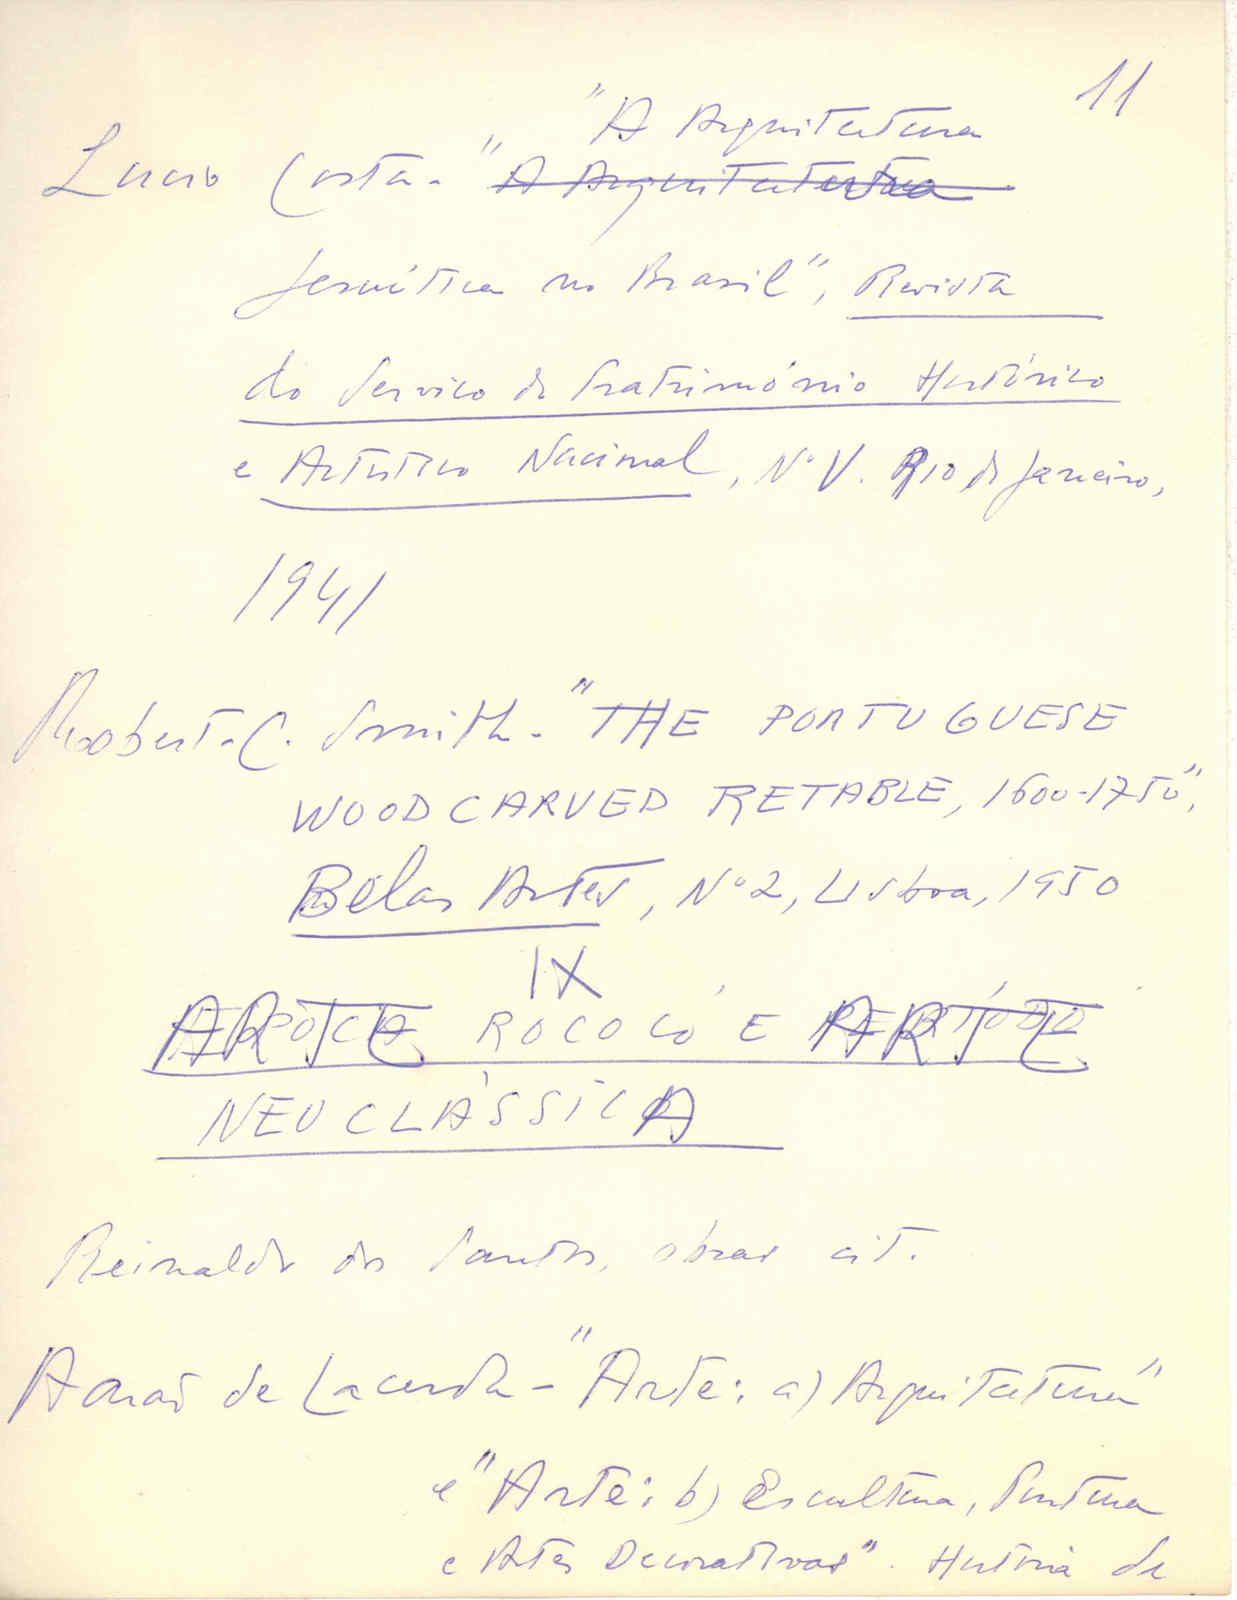 11
"A Arquitectura
Lucio Costa - " A Arquitectura
Jesuítica no Brasil", Revista
do Serviço do Patrimônio Histórico
e Artístico Nacional, Nº V. Rio de Janeiro,
1941
Robert C. Smith - "THE PORTUGUESE
WOODCARVED RETABLE, 1600-1750",
Belas Artes, Nº 2, Lisboa, 1950
IX
ARTE ROCOCÓ E ARTE
NEOCLÁSSICA
Reinaldo dos Santos, obras cit.
Aarão de Lacerda - "Arte: a) Arquitectura"
e "Arte: b) Escultura, Pintura
e Artes Decorativas". História da